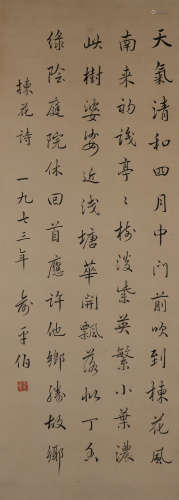 天氣清和四月中门前吹到楝花風
南来初識亭〻樹淡素英繁小葉濃
此樹婆娑近浅塘華開飄落似丁香
緑陰庭院休回首應许他鄉勝故鄉
楝花诗 一九七三年 俞平伯